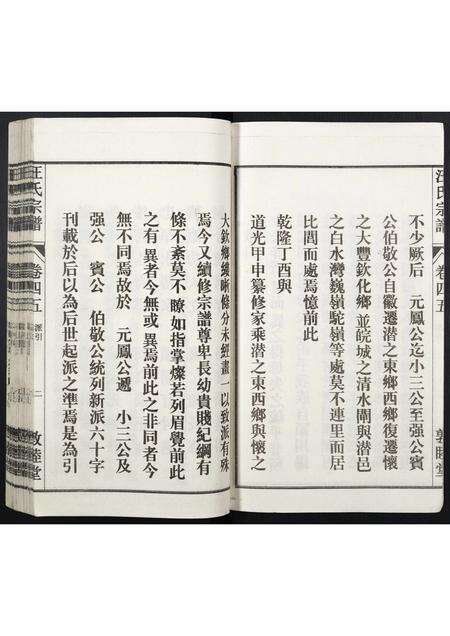 汪氏宗譜
卷四五
敦睦堂
不少厥后 元鳳公迄小三公至强公賓
公伯敬公自徽遷潜之東鄉西鄉復遷懷
之大豐欽化鄉並皖城之清水閘與潜邑
之白水灣巍嶺駝嶺等處莫不連里而居
比閭而處焉憶前此
乾隆丁酉與
道光甲申纂修家乘潜之東西鄉與懷之
大欽鄉纔晰條分未經畫一以致派有殊
焉今又續修宗譜尊卑長幼貴賤紀綱有
條不紊莫不 瞭如指掌燦若列眉覺前此
之有 異者今無或 異焉前此之非同者今
無不同焉故於 元鳳公遞 小三公及
强公 賓公 伯敬公統列新派六十字
刊載於后以為后世起派之準焉是為引
汪氏宗譜
卷四五
派引
二
敦睦堂